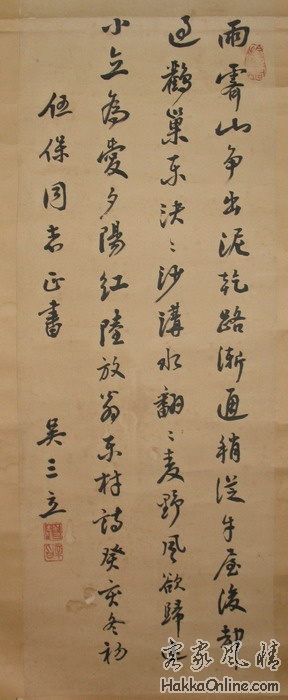 雨霽山争出泥乾路漸通稍從牛屋後却
過鸛巢東決〻沙溝水翻〻麦野風欲歸還
小立為愛夕陽紅陸放翁東村詩癸亥冬初
伍保同志正書 吳三立
客家風情
HakkaOnline.com